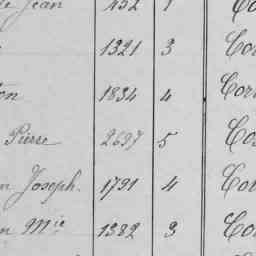 Jean 452 1 Co
1321 3 Cor
on 1834 4 Cor
Pierre 2697 5 Cos
n Joseph. 1791 4 Cot
n Mie 1382 3 Cou